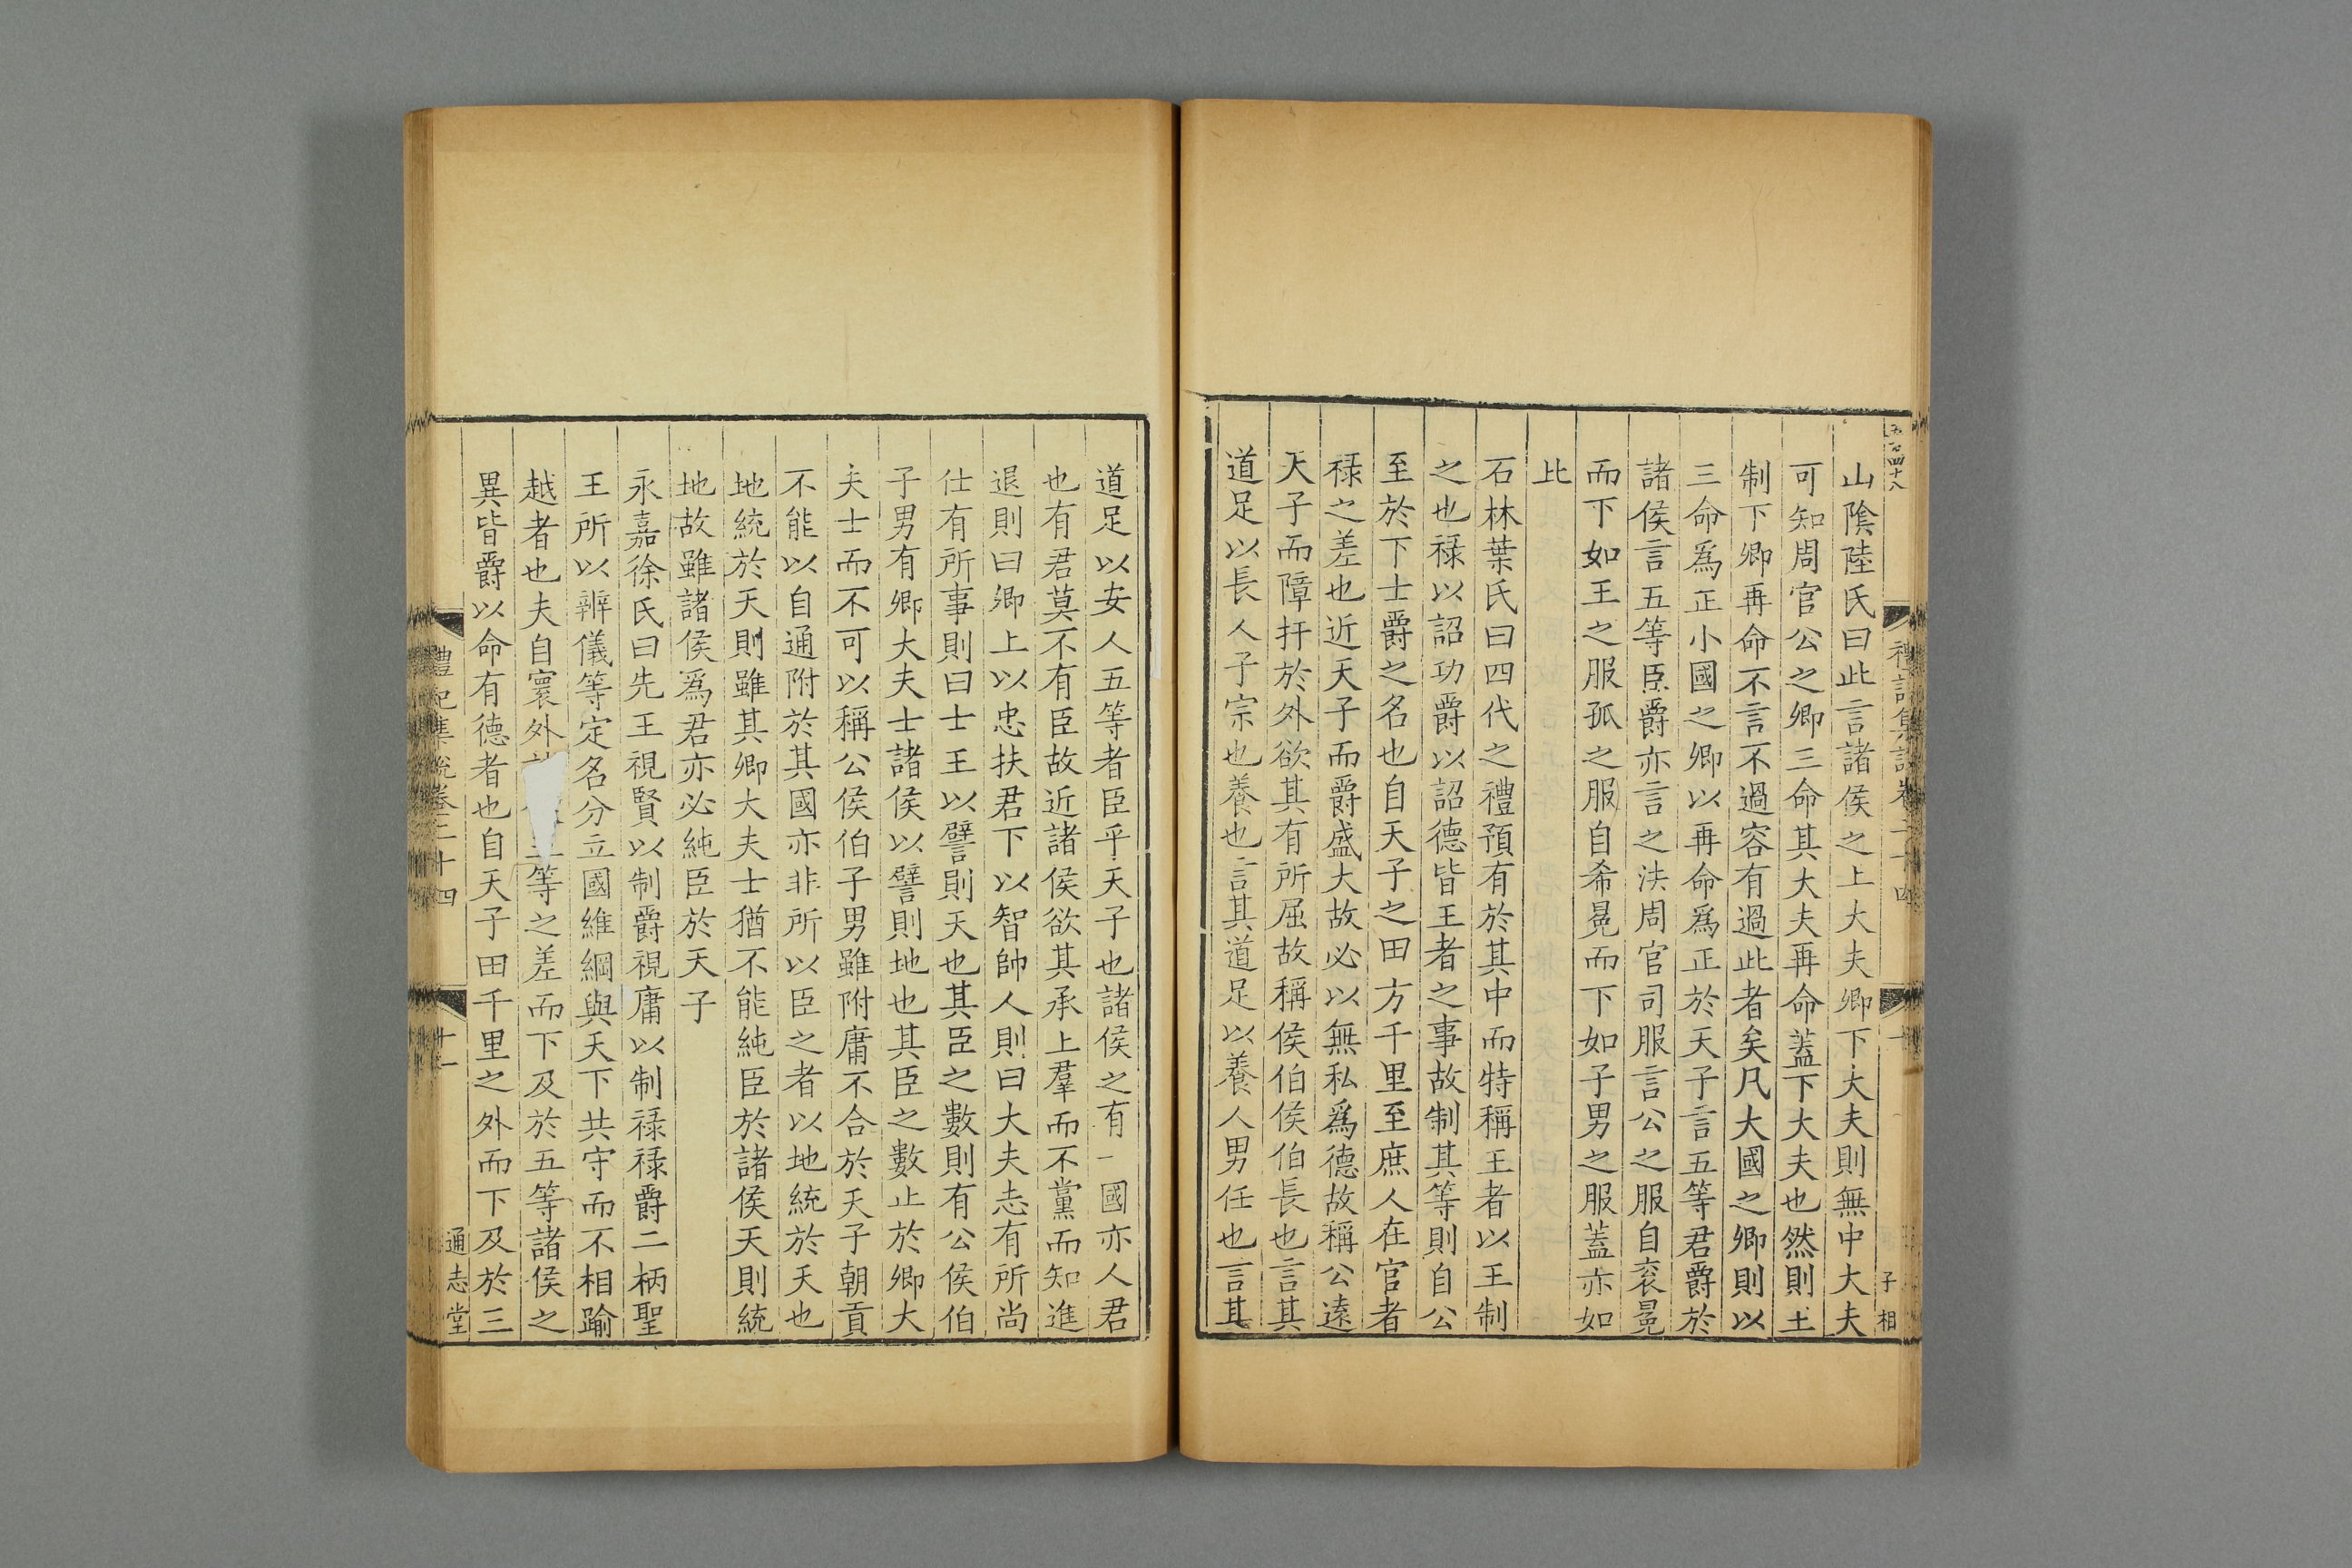 五百四十八
禮記集說卷二十四
子相
山隂陸氏曰此言諸侯之上大夫卿下大夫則無中大夫
可知周官公之卿三命其大夫再命蓋下大夫也然則士
制下卿再命不言不過容有過此者矣凡大國之卿則以
三命爲正小國之卿以再命爲正於天子言五等君爵於
諸侯言五等臣爵亦言之法周官司服言公之服自衮冕
而下如王之服孤之服自希冕而下如子男之服蓋亦如
此
石林葉氏曰四代之禮預有於其中而特稱王者以王制
之也祿以詔功爵以詔德皆王者之事故制其等則自公
至於下士爵之名也自天子之田方千里至庶人在官者
祿之差也近天子而爵盛大故必以無私爲德故稱公遠
天子而障扞於外欲其有所屈故稱侯伯侯伯長也言其
道足以長人子宗也養也言其道足以養人男任也言其
道足以安人五等者臣乎天子也諸侯之有一國亦人君
也有君莫不有臣故近諸侯欲其承上羣而不黨而知進
退則曰卿上以忠扶君下以智帥人則曰大夫志有所尚
仕有所事則曰士王以譬則天也其臣之數則有公侯伯
子男有卿大夫士諸侯以譬則地也其臣之數止於卿大
夫士而不可以稱公侯伯子男雖附庸不合於天子朝貢
不能以自通附於其國亦非所以臣之者以地統於天也
地統於天則雖其卿大夫士猶不能純臣於諸侯天則統
地故雖諸侯爲君亦必純臣於天子
永嘉徐氏曰先王視賢以制爵視庸以制祿祿爵二柄聖
王所以辨儀等定名分立國維綱與天下共守而不相踰
越者也夫自寰外等之差而下及於五等諸侯之
異皆爵以命有德者也自天子田千里之外而下及於三
禮記集說卷二十四
十一
通志堂